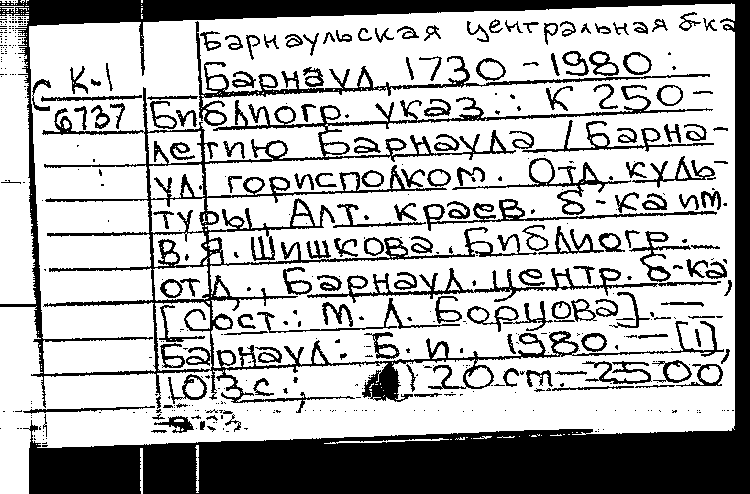 Барнаульская центральная б-ка
С К-1
6737
Барнаул, 1730-1980:
Библиогр. указ.: К 250-
летию Барнаула / Барна-
ул. горисполком. Отд. куль-
туры, Алт. краев. б-ка им.
В.Я. Шишкова. Библиогр.
отд., Барнаул. центр. б-ка;
[Сост.: М. Л. Борцова]. —
Барнаул: Б. и., 1980. — [1],
103 с.; 20 см. — 2500